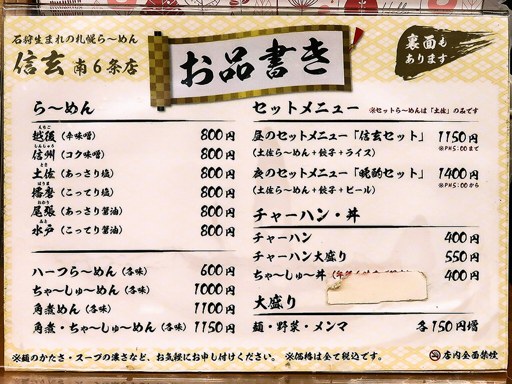 石狩生まれの札幌ら〜めん
信玄 南6条店
お品書き
裏面も
あります
ら〜めん
越後(辛味噌) 800円
信州(コク味噌) 800円
土佐(あっさり塩) 800円
播磨(こってり塩) 800円
尾張(あっさり醤油) 800円
水戸(こってり醤油) 800円
ハーフら〜めん(各味) 600円
ちゃ〜しゅ〜めん(各味) 1000円
角煮めん(各味) 1100円
角煮・ちゃ〜しゅ〜めん(各味) 1150円
セットメニュー ※セットら〜めんは「土佐」のみです
昼のセットメニュー「信玄セット」 1150円
(土佐ら〜めん+餃子+ライス) ※PM5:00まで
夜のセットメニュー「晩酌セット」 1400円
(土佐ら〜めん+餃子+ビール) ※PM5:00から
チャーハン・丼
チャーハン 400円
チャーハン大盛り 550円
ちゃ〜しゅ〜丼 400円
大盛り
麺・野菜・メンマ 各150円増
※麺のかたさ・スープの濃さなど、お気軽にお申し付けください。 ※価格は全て税込です。
店内全面禁煙